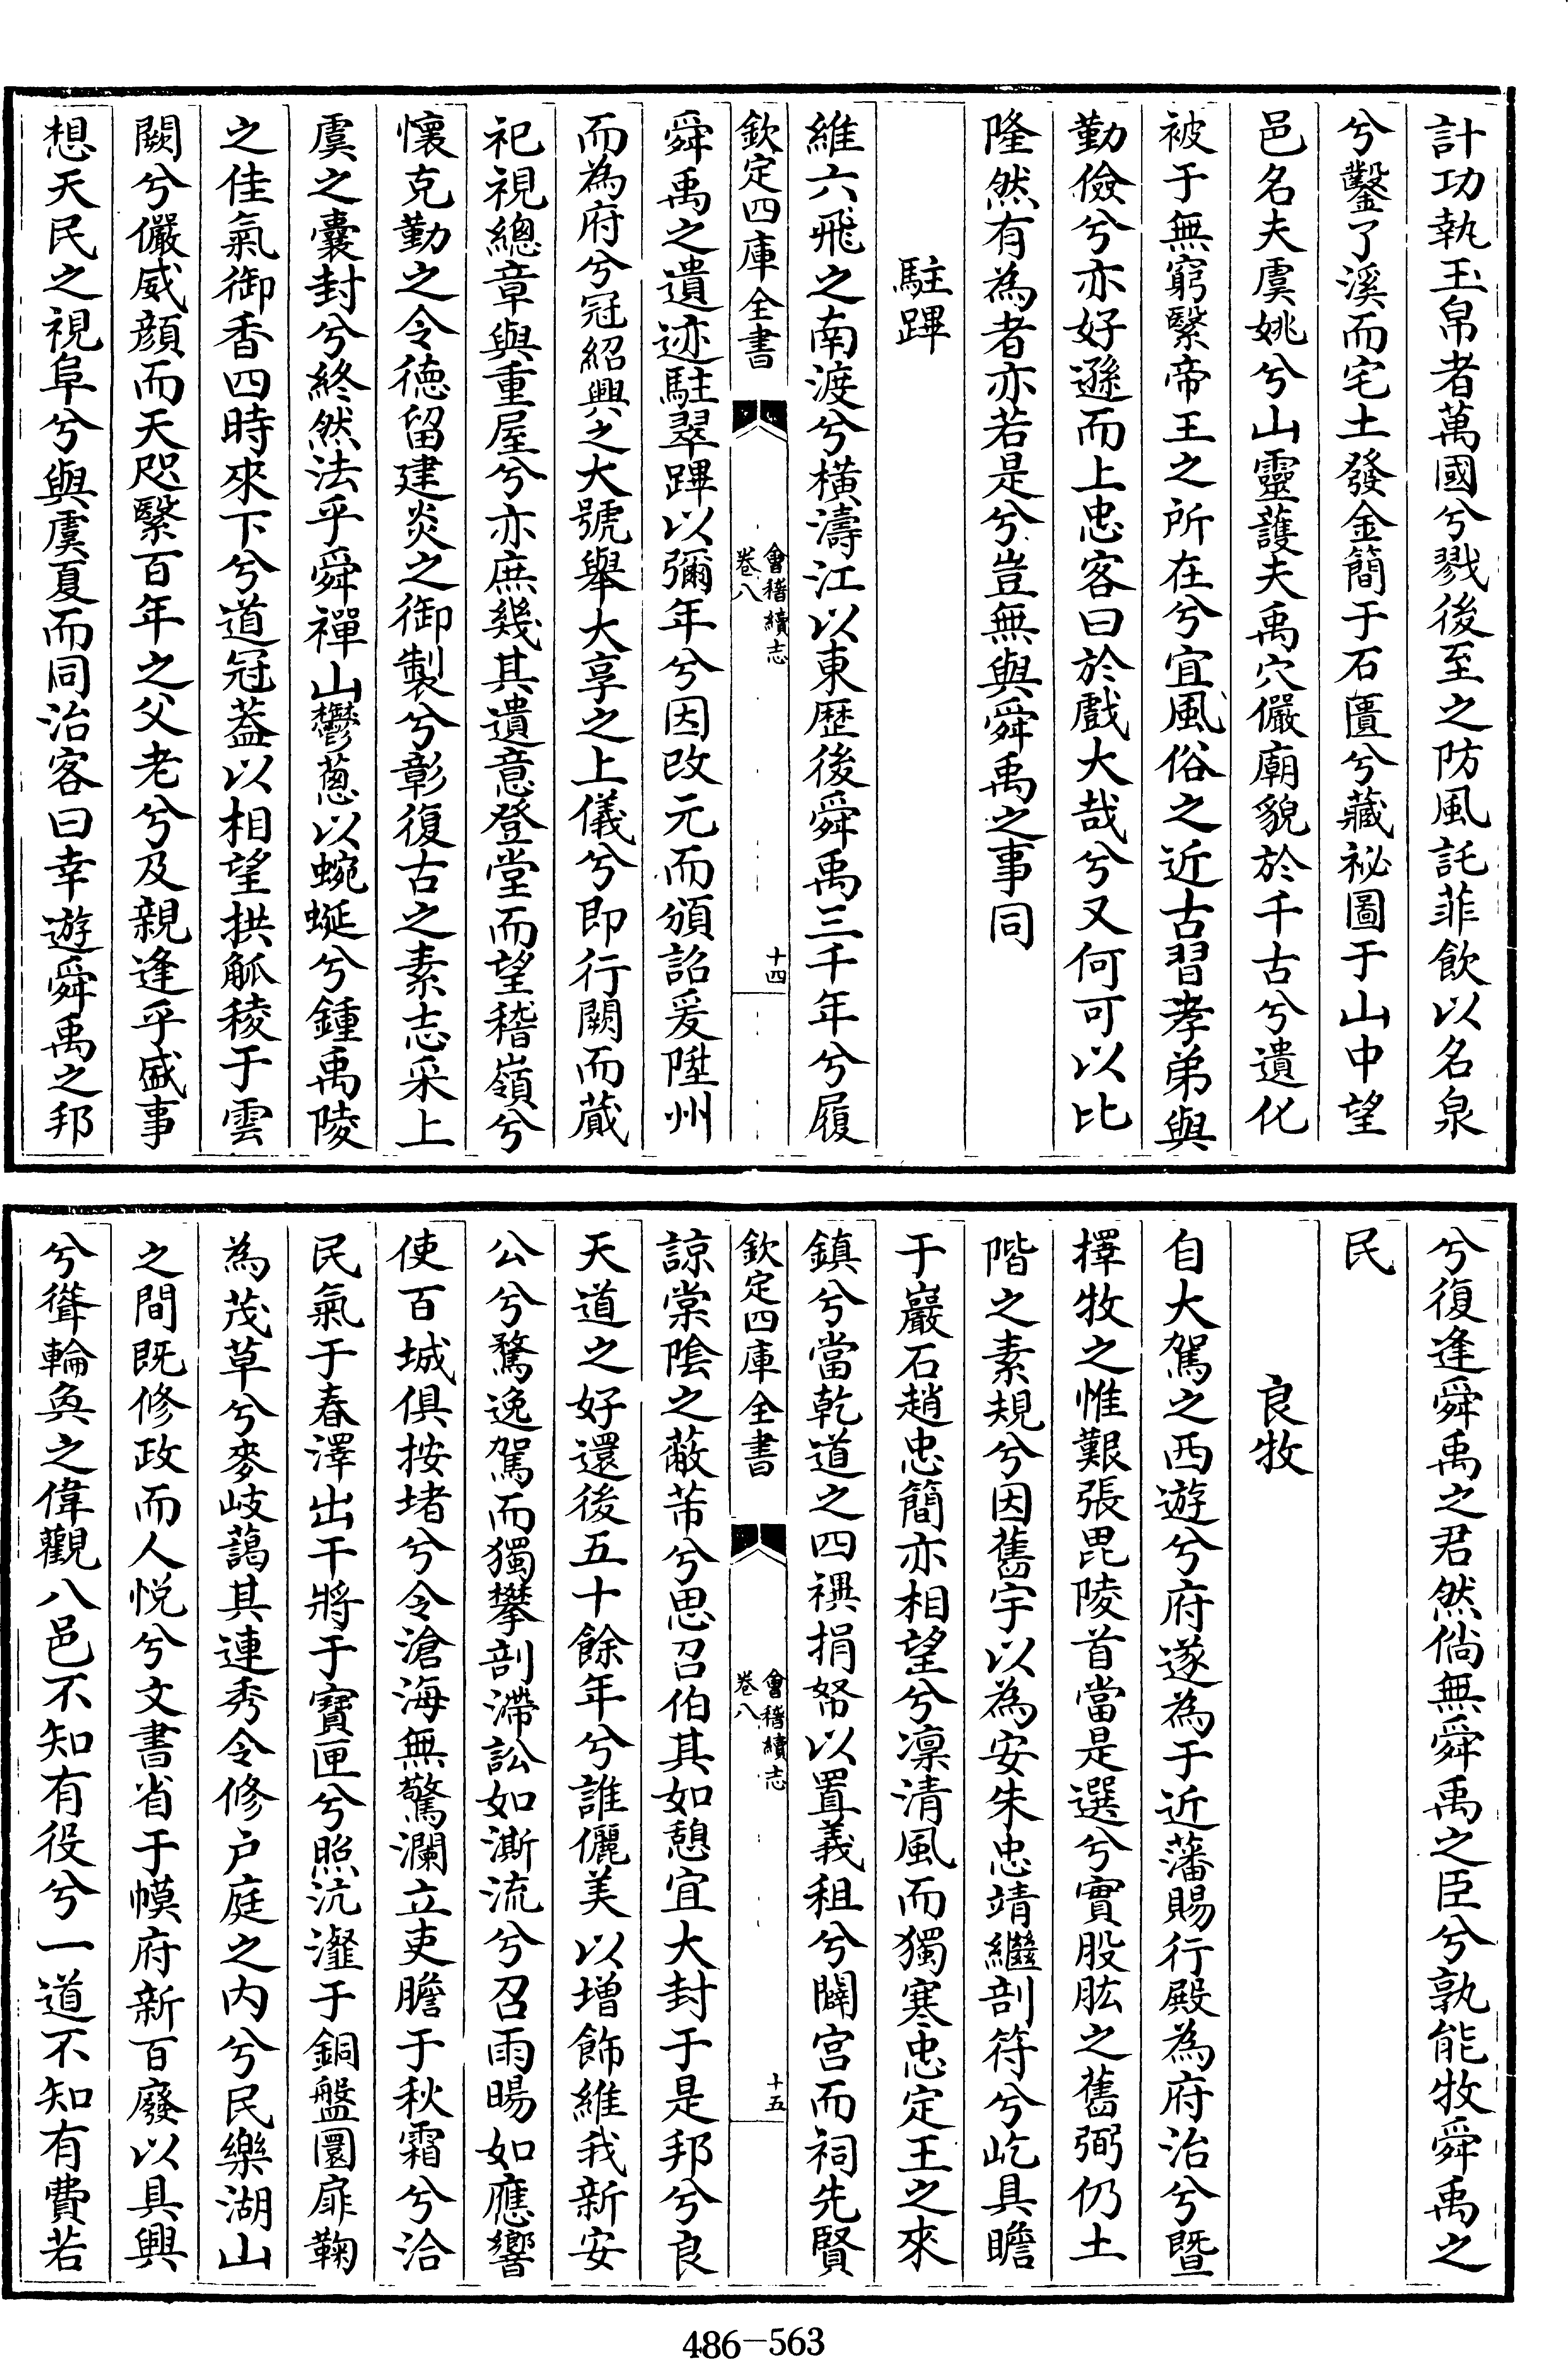 計功執玉帛者萬國兮戮後至之防風託菲飲以名泉
兮鑿了溪而宅土發金簡于石匱兮藏祕圖于山中望
邑名夫虞姚兮山靈䕶夫禹穴儼廟貌於千古兮遺化
被于無窮繄帝王之所在兮宜風俗之近古習孝弟與
勤儉兮亦好遜而上忠客曰於戲大哉兮又何可以比
隆然有為者亦若是兮豈無與舜禹之事同
駐蹕
維六飛之南渡兮橫濤江以東歴後舜禹三千年兮履
欽定四庫全書
會稽續志
卷八
十四
舜禹之遺迹駐翠蹕以彌年兮因改元而頒詔爰陞州
而為府兮冠紹興之大號舉大享之上儀兮即行闕而蕆
祀視總章與重屋兮亦庶幾其遺意登堂而望稽嶺兮
懷克勤之令德留建炎之御製兮彰復古之素志采上
虞之囊封兮終然法乎舜禪山鬱蔥以蜿蜒兮鍾禹陵
之佳氣御香四時來下兮道冠蓋以相望拱觚稜于雲
闕兮儼威顔而天咫繄百年之父老兮及親逢乎盛事
想天民之視阜兮與虞夏而同治客曰幸遊舜禹之邦
兮復逢舜禹之君然倘無舜禹之臣兮孰能牧舜禹之
民
良牧
自大駕之西遊兮府遂為于近藩賜行殿為府治兮暨
擇牧之惟艱張毘陵首當是選兮實股肱之舊弼仍土
階之素規兮因舊宇以為安朱忠靖繼剖符兮屹具瞻
于巖石趙忠簡亦相望兮凜清風而獨寒忠定王之來
鎮兮當乾道之四禩捐帑以置義租兮闢宮而祠先賢
欽定四庫全書
會稽續志
卷八
十五
諒棠陰之蔽芾兮思召伯其如憩宜大封于是邦兮良
天道之好還後五十餘年兮誰儷美以增飾維我新安
公兮騖逸駕而獨攀剖滯訟如澌流兮召雨暘如應響
使百城俱按堵兮令滄海無驚瀾立吏膽于秋霜兮洽
民氣于春澤出干將于寶匣兮照沆瀣于銅盤圜扉鞠
為茂草兮麥岐藹其連秀令修户庭之内兮民樂湖山
之間既修政而人悦兮文書省于幙府新百廢以具興
兮聳輪奐之偉觀八邑不知有役兮一道不知有費若
486-563